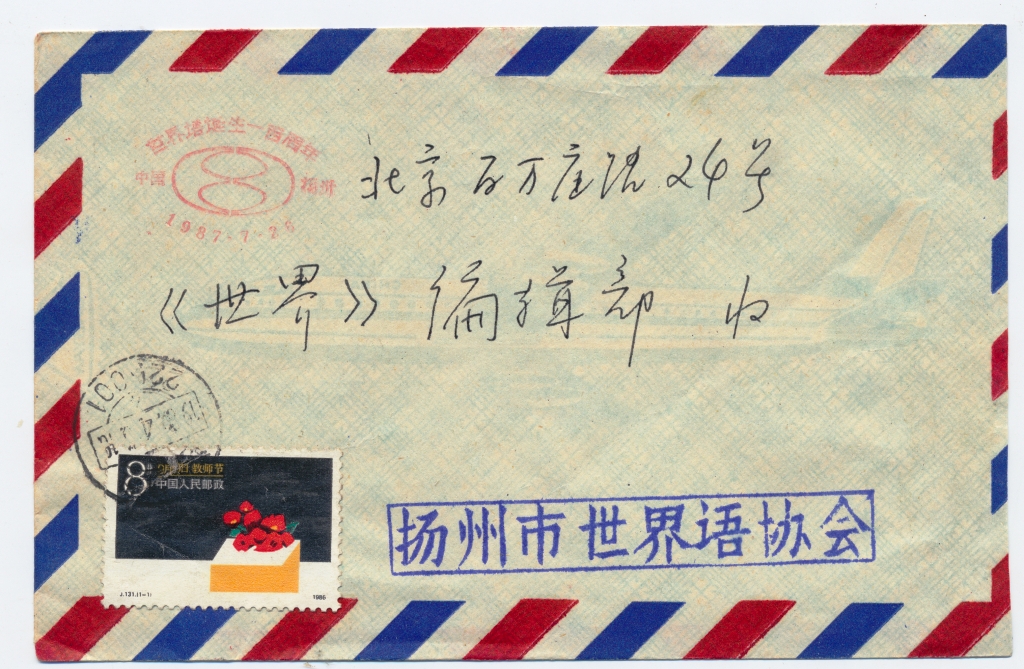 世界语诞生一百周年
中国 扬州
1987.7.26
北京百万庄路24号
《世界》编辑部 收
225001
8分 9月10日教师节
中国人民邮政
J.131.(1-1) 1986
扬州市世界语协会